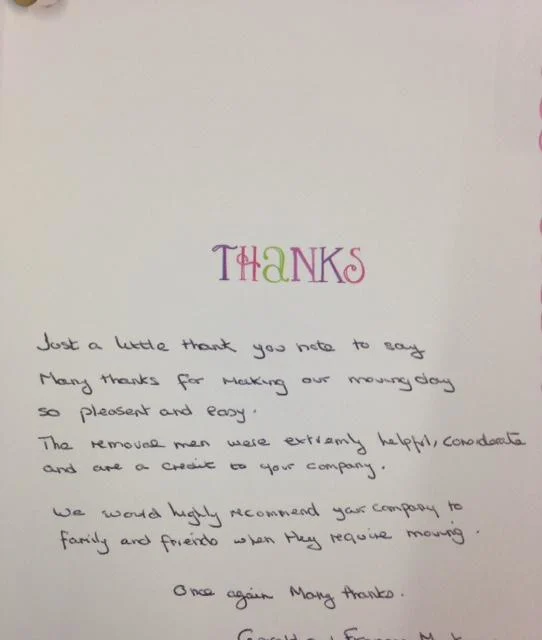 THANKS
Just a little thank you note to say
Many thanks for making our moving day
so pleasent and easy.
The removal men were extremly helpful, considerate
and are a credit to your company.
We would highly recommend your company to
family and friends when they require moving.
Once again Many thanks.